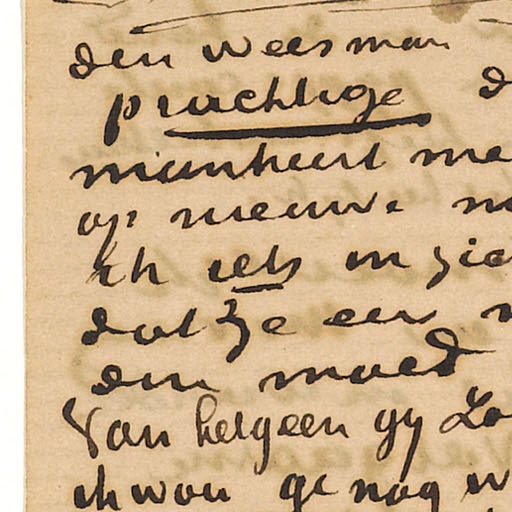 den weesman
prachtige d
mankeert me
op nieuwe
ik iets in zie
dat ze een
den moed
Van hetgeen gy Zo
ik wou ge nog w